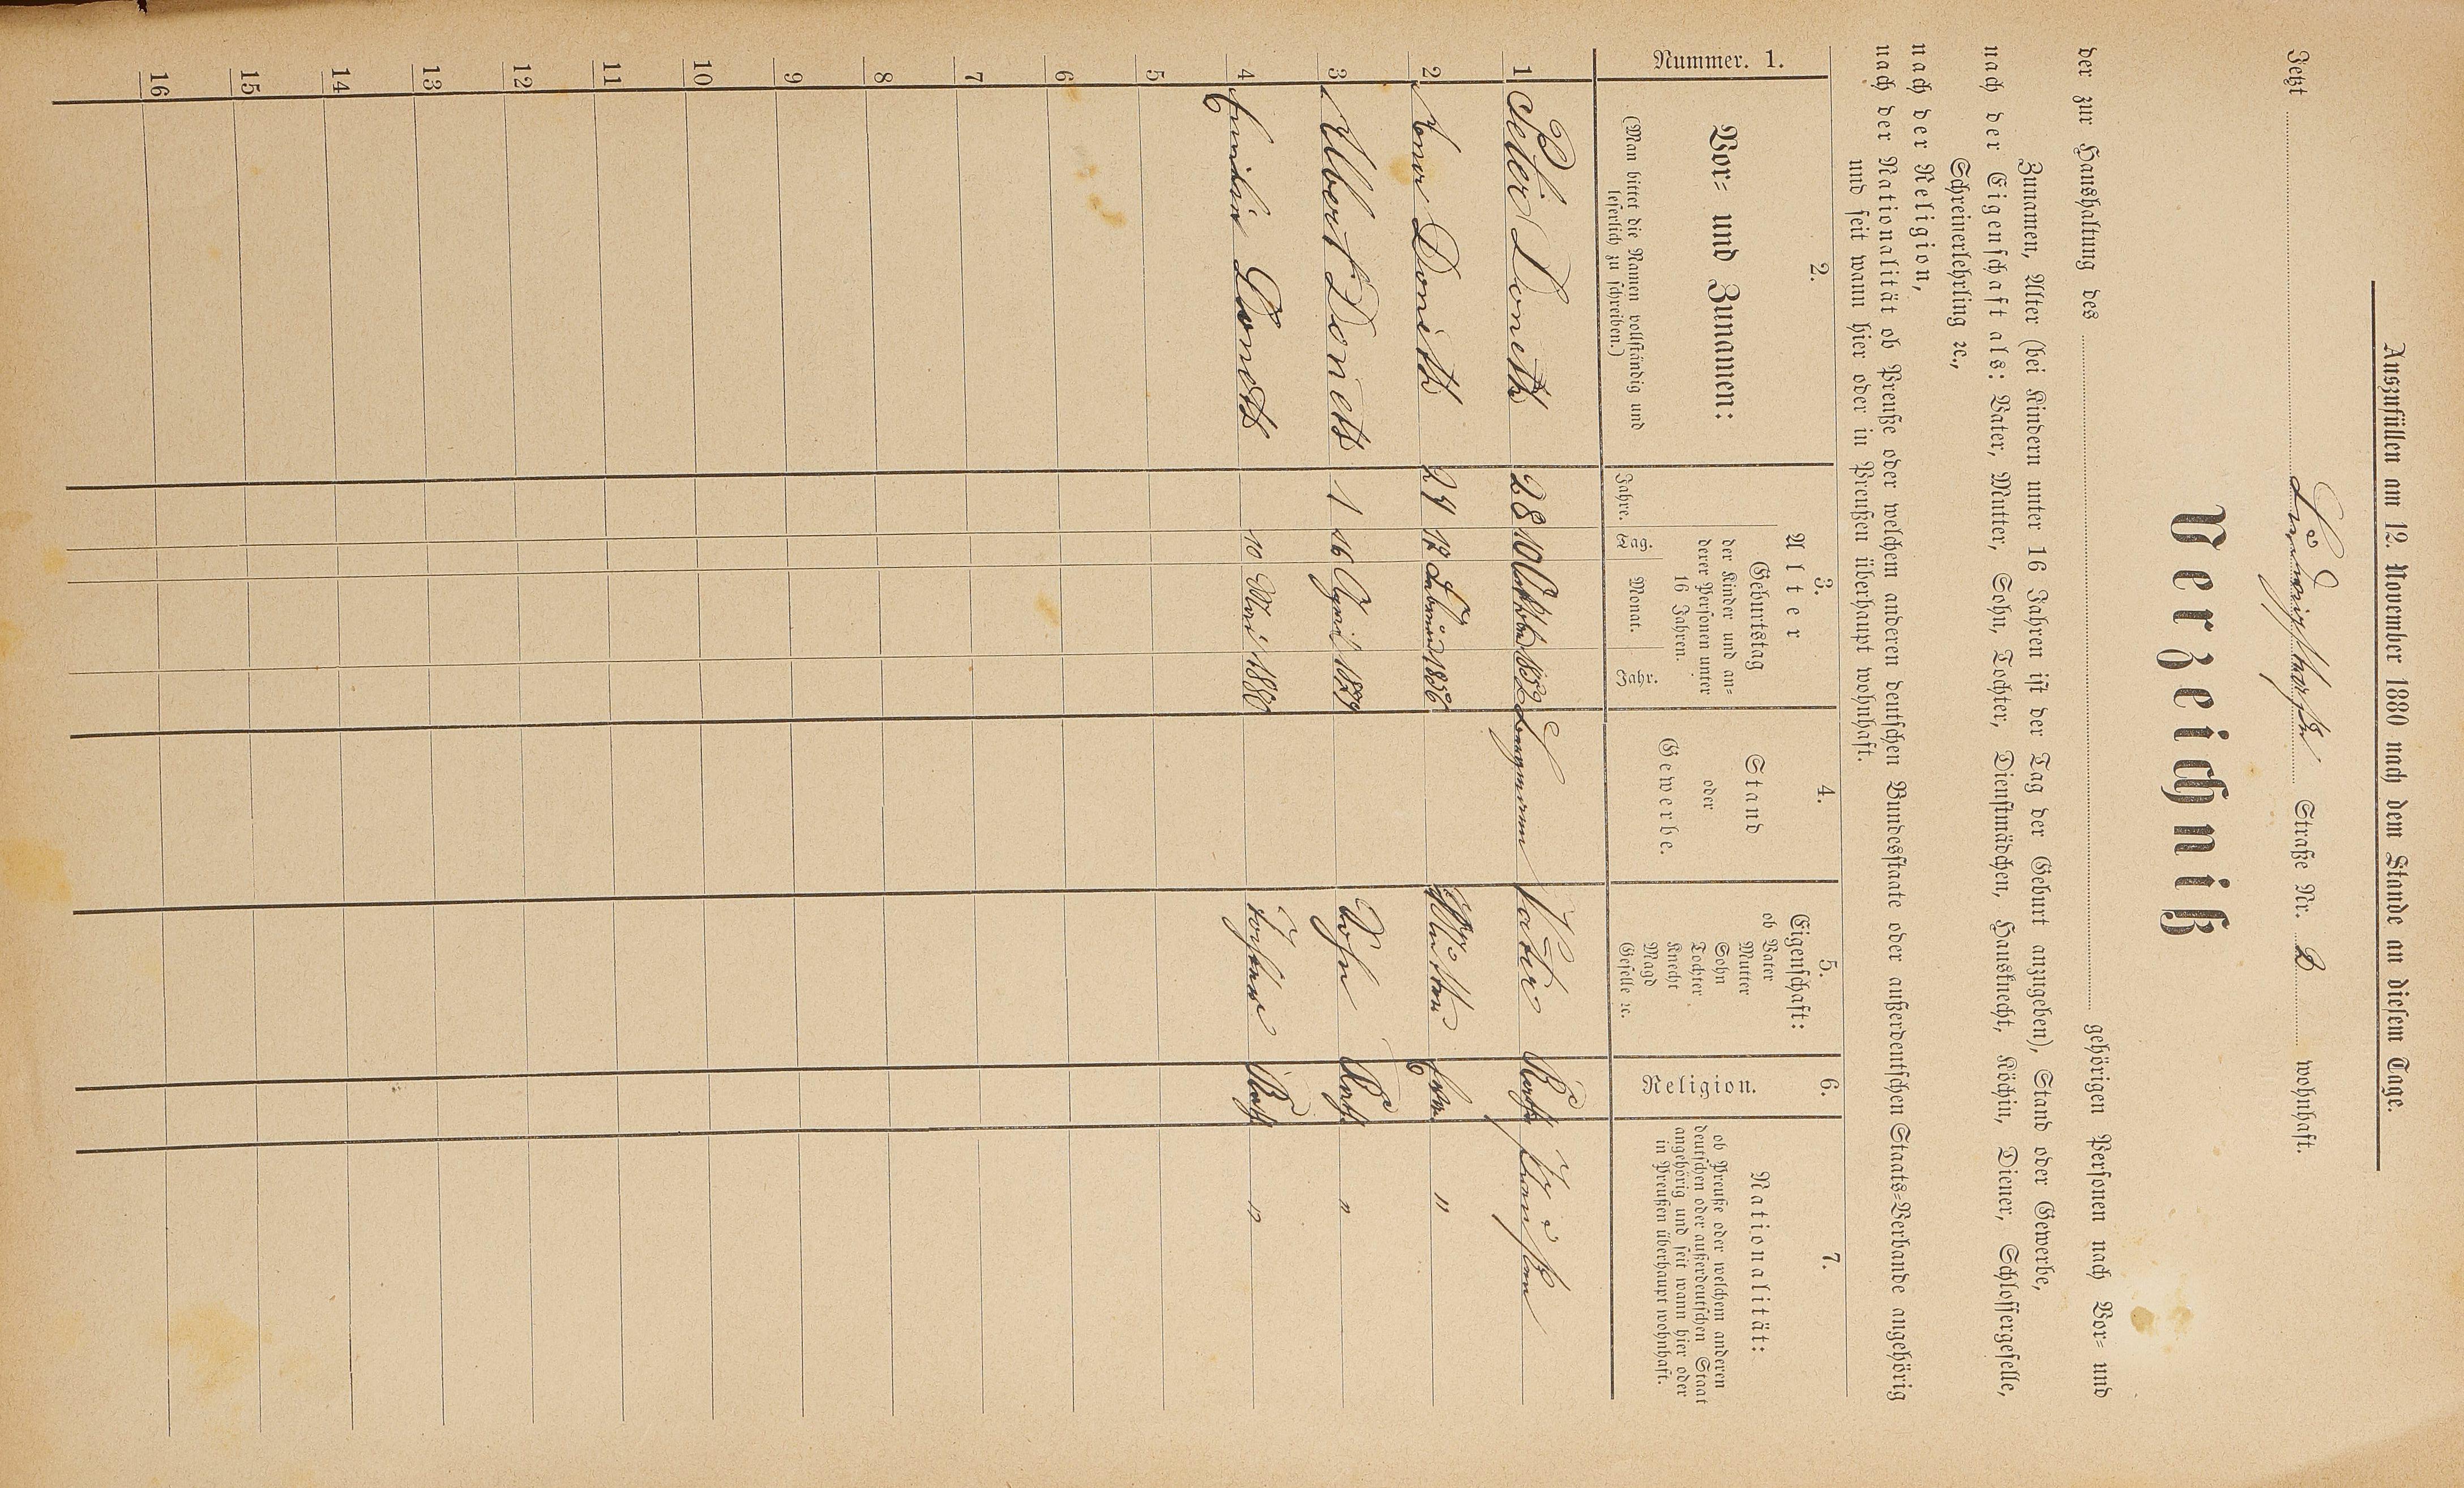 Auszufüllen am 12. November 1880 nach dem Stande an diesem Tage.
Jetzt Ludwigstraße Straße Nr. 2 wohnhaft.
Verzeichniß
der zur Haushaltung des gehörigen Personen nach Vor- und
Zunamen, Alter (bei Kindern unter 16 Jahren ist der Tag der Geburt anzugeben), Stand oder Gewerbe,
nach der Eigenschaft als: Vater, Mutter, Sohn, Tochter, Dienstmädchen, Hausknecht, Köchin, Diener, Schlossergeselle,
Schreinerlehrling ꝛc.,
nach der Religion,
nach der Nationalität ob Preuße oder welchem anderen deutschen Bundesstaate oder außerdeutschen Staats-Verbande angehörig
und seit wann hier oder in Preußen überhaupt wohnhaft.
Nummer. 1.
2.
Vor- und Zunamen:
(Man bittet die Namen vollständig und
leserlich zu schreiben.)
3.
Alter
Jahre.
Geburtstag
der Kinder und an-
derer Personen unter
16 Jahren.
Tag. Monat. Jahr.
4.
Stand
oder
Gewerbe.
5.
Eigenschaft:
ob Vater
Mutter
Sohn
Tochter
Knecht
Magd
Geselle ꝛc.
6.
Religion.
7.
Nationalität:
ob Preuße oder welchem anderen
deutschen oder außerdeutschen Staat
angehörig und seit wann hier oder
in Preußen überhaupt wohnhaft.
1 Peter Doneth 28 10 Oktober 1852 Bergmann Vater Kath Preußen
2 Anna Doneth 24 12 Februar 1856 Mutter Evan "
3 Albert Doneth 1 16 April 1879 Sohn Kath "
4 Emilie Doneth 10 Mai 1880 Tochter Kath "
5
6
7
8
9
10
11
12
13
14
15
16